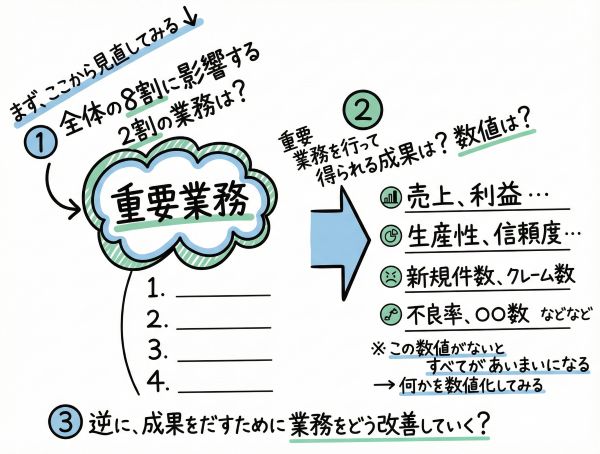 まず、ここから見直してみる↓
① 全体の8割に影響する
2割の業務は？
重要業務
1.
2.
3.
4.
②
重要
業務を行って
得られる成果は？数値は？
売上、利益…
生産性、信頼度…
新規件数、クレーム数
不良率、〇〇数 などなど
※この数値がないと
すべてがあいまいになる
→何かを数値化してみる
③ 逆に、成果をだすために業務をどう改善していく？